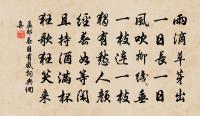 雨滴草芽出
一日長一日
風吹柳線垂
一枝連一枝
獨有愁人顏
經春如等閒
且持酒滿杯
狂歌狂笑來
孟郊春日有感詞典網
集